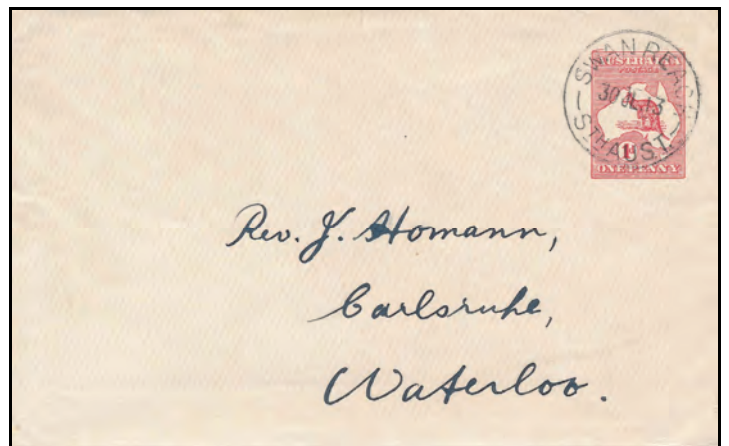 SWAN REACH
30 JL 13
STH AUST
AUSTRALIA
POSTAGE
1D
ONE PENNY
Rev. J. Homann,
Carlsruhe,
Waterloo.